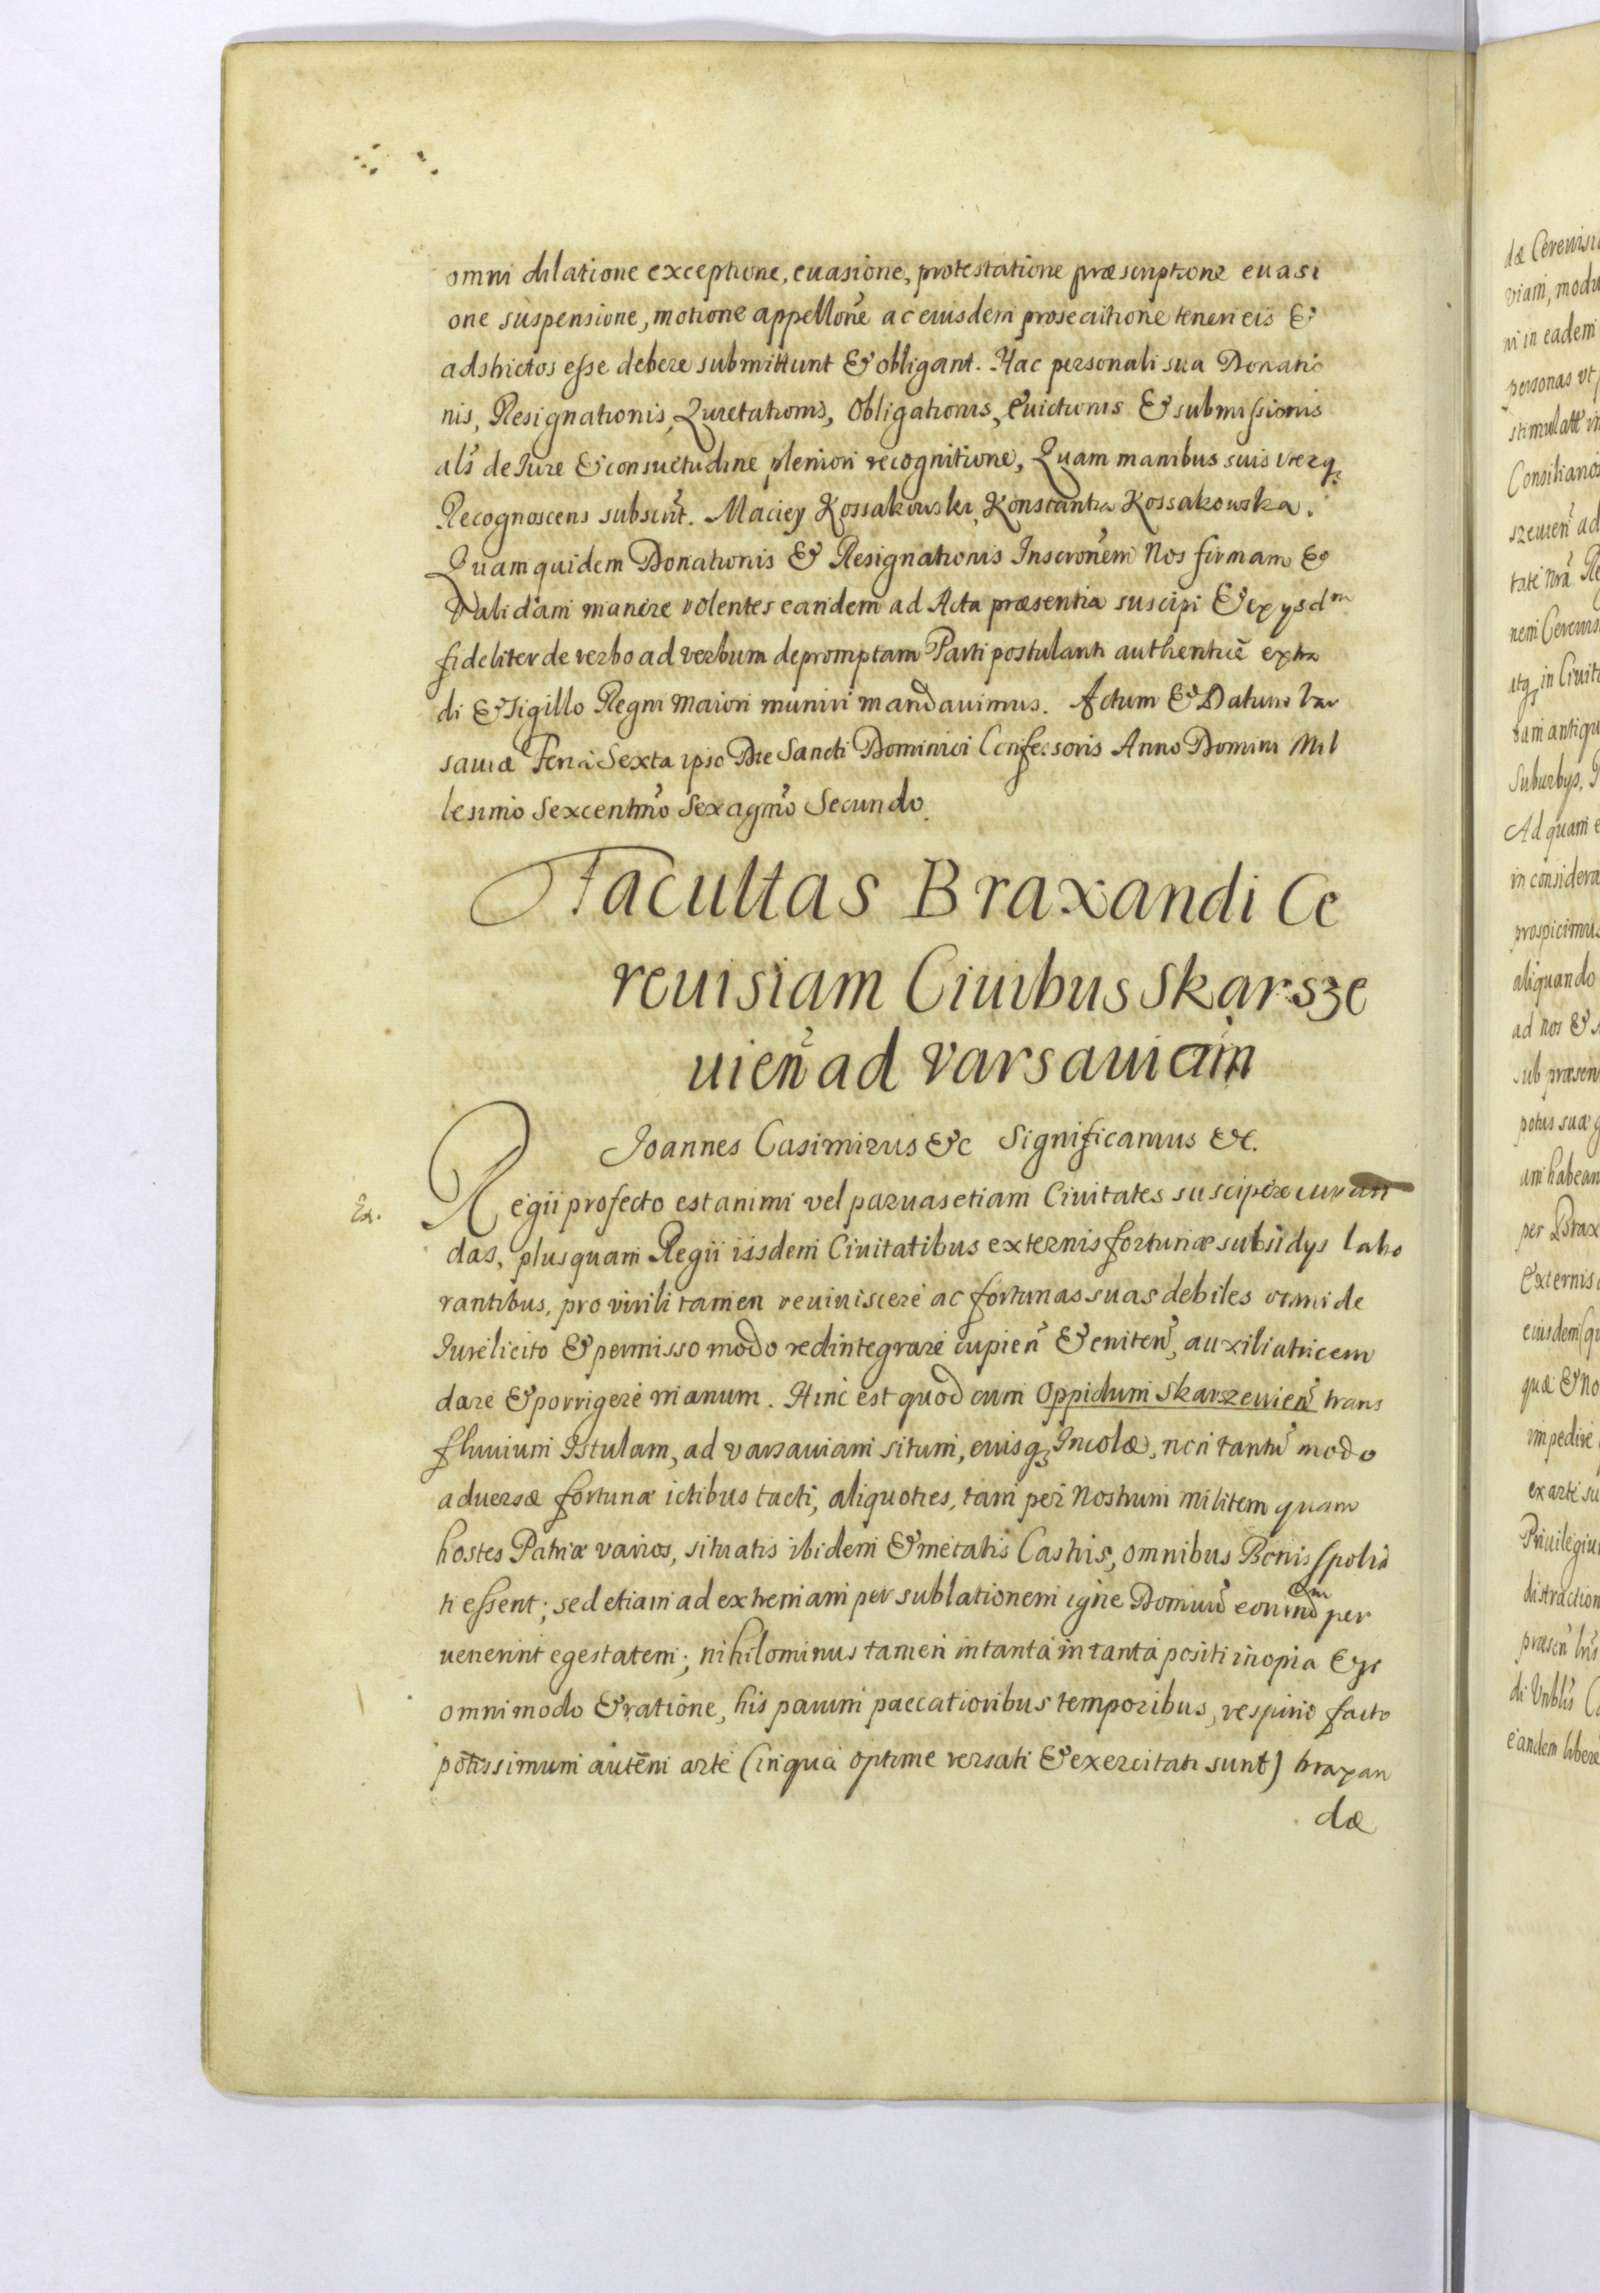 omni dilatione exceptione, euasione, protestatione præscriptione euasi
one suspensione, motione appellõne ac eiusdem prosecutione teneri eis &
adstrictos esse debere submittunt & obligant. Hac personali sua Donatio
nis, Resignationis, Quietationis, Obligationis, Euictionis & submissionis
als de Iure & consuetudine pleniori recognitione, Quam manibus suis vterq;
Recognoscens subscrũt. Maciey Kossakowski, Konstantia Kossakowska.
Quam quidem Donationis & Resignationis Inscrõnem Nos firmam &
Validam manere volentes eandem ad Acta præsentia suscipi & ex ysdm
fideliter de verbo ad verbum depromptam Parti postulanti authenticẽ extra
di & Sigillo Regni Maiori muniri mandauimus. Actum & Datum Var
sauiæ Feria Sexta ipso Die Sancti Dominici Confessoris Anno Domini Mil
lesimo Sexcentmõ Sexagmõ Secundo.
Facultas Braxandi Ce
reuisiam Ciuibus Skarsze
uieñ ad Varsauiam
Ioannes Casimirus &c Significamus &c.
Regii profecto est animi vel paruas etiam Ciuitates suscipere curan
das, plusquam Regii iisdem Ciuitatibus externis fortunæ subsidys labo
rantibus, pro virili tamen reuiuiscere ac fortunas suas debiles omni de
Iure licito & permisso modo redintegrare cupieñ & eniteñ, auxiliatricem
dare & porrigere manum. Hinc est quod cum Oppidum Skarszeuieñ trans
fluuium Istulam, ad Varsauiam situm, eiusq; Incolæ, non tantũ modo
aduersæ fortunæ ictibus tacti, aliquoties, tam per Nostrum militem quam
hostes Patriæ varios, situatis ibidem & metatis Castris, omnibus Bonis spolia
ti essent; sed etiam ad extremam per sublationem igne Domuũ eorundm per
uenerint egestatem; nihilominus tamen in tanta in tanta positi inopia
omni modo & ratione, his parum paccatioribus temporibus, respirio facto
potissimum autẽm arte (in qua optime versati & exercitati sunt) braxan
dæ